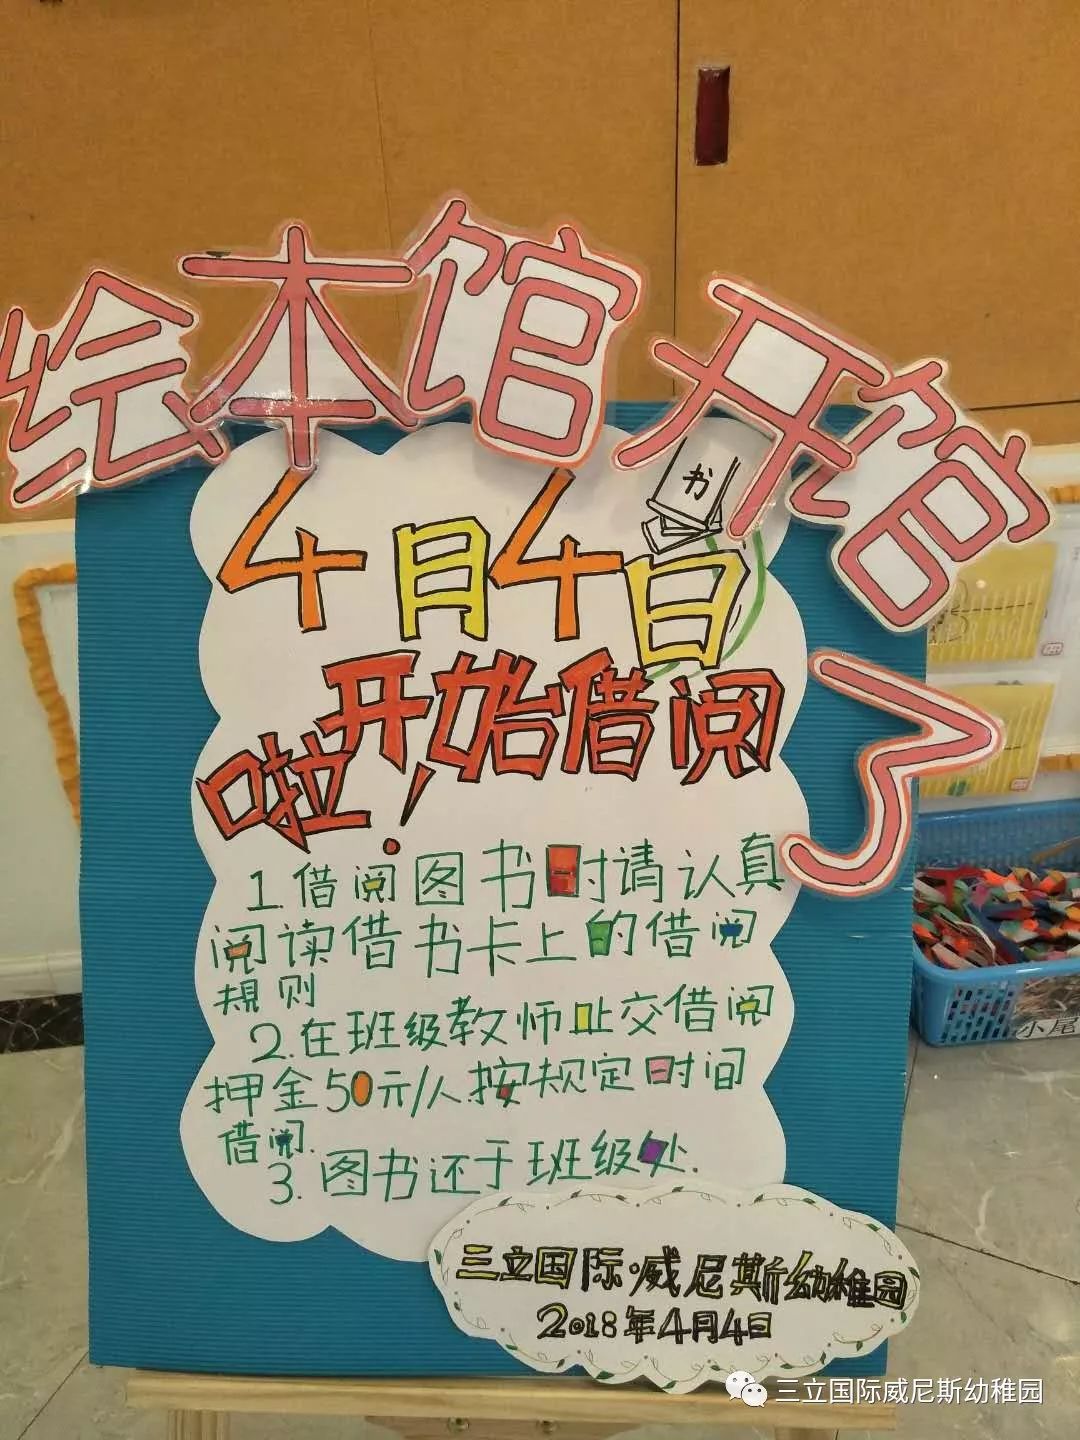 绘本馆开馆了
书
4月4日
开始借阅
啦！
1.借阅图书时请认真
阅读借书卡上的借阅
规则
2.在班级教师处交借阅
押金50元/人.按规定时间
借阅.
3.图书还于班级处.
三立国际·威尼斯幼稚园
2018年4月4日
小尾
三立国际威尼斯幼稚园